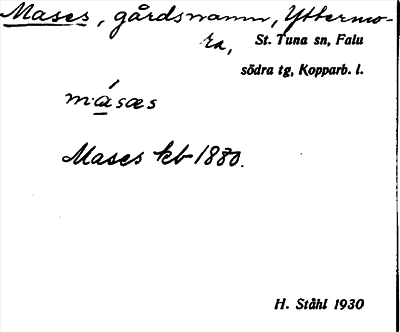 Mases, gårdsnamn, Yttermo-
ra, St. Tuna sn, Falu
södra tg, Kopparb. l.
mǻsæs
Mases kb 1880.
H. Ståhl 1930